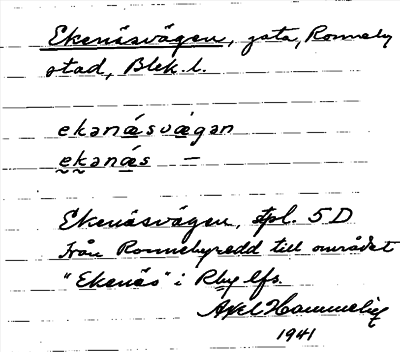 Ekenäsvägen, gata, Ronneby
stad, Blek. l.
ekanä́svägan
ekanä́s —
Ekenäsvägen, stpl. 5 D
Från Ronnebyredd till området
"Ekenäs" i Rby lfs.
Axel Hammelig
1941